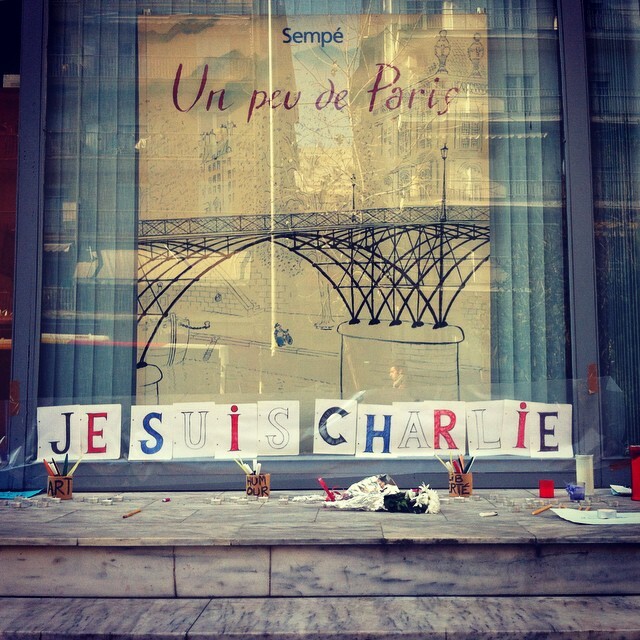 Sempé
Un peu de Paris
JE SUiS CHARLiE
ART
HUM
OUR
RTE